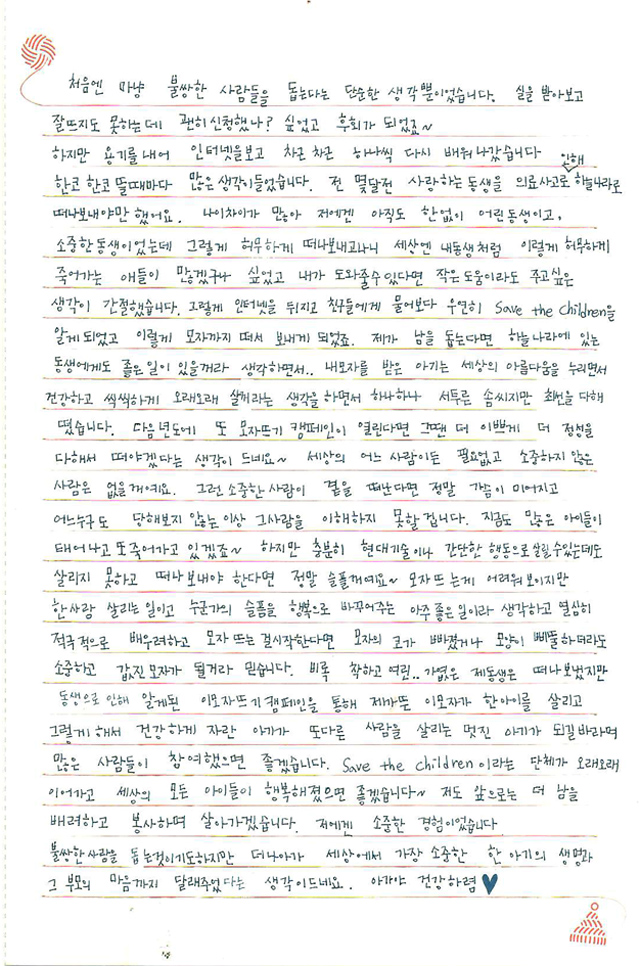 처음엔 마냥 불쌍한 사람들을 돕는다는 단순한 생각뿐이었습니다. 실을 받아보고
잘뜨지도 못하는데 괜히신청했나? 싶었고 후회가 되었죠~
하지만 용기를내어 인터넷을보고 차근차근 하나씩 다시 배워나갔습니다
인해
한코 한코 뜰때마다 많은생각이들었습니다. 전 몇달전 사랑하는동생을 의료사고로 하늘나라로
떠나보내야만 했어요. 나이차이가 많아 저에겐 아직도 한없이 어린동생이고,
소중한동생이었는데 그렇게 허무하게 떠나보내고나니 세상엔 내동생처럼 이렇게 허무하게
죽어가는 애들이 많겠구나 싶었고 내가 도와줄수있다면 작은도움이라도 주고싶은
생각이 간절했습니다. 그렇게 인터넷을 뒤지고 친구들에게 물어보다 우연히 Save the children을
알게되었고 이렇게 모자까지 떠서 보내게 되었죠. 제가 남을 돕는다면 하늘나라에 있는
동생에게도 좋은일이 있을꺼라 생각하면서.. 내모자를 받은 아기는 세상의 아름다움을 누리면서
건강하고 씩씩하게 오래오래 살꺼라는 생각을 하면서 하나하나 서투른 솜씨지만 최선을 다해
떴습니다. 다음년도에 또 모자뜨기 캠페인이 열린다면 그땐 더 이쁘게 더 정성을
다해서 떠야겠다는 생각이 드네요~ 세상의 어느 사람이든 필요없고 소중하지 않은
사람은 없을꺼예요. 그런 소중한사람이 곁을 떠난다면 정말 가슴이 미어지고
어느누구도 당해보지 않는이상 그사람을 이해하지 못할겁니다. 지금도 많은 아이들이
태어나고 또죽어가고 있겠죠~ 하지만 충분히 현대기술이나 간단한 행동으로 살릴수있는데도
살리지 못하고 떠나보내야 한다면 정말 슬플꺼에요~ 모자뜨는게 어려워보이지만
한사람 살리는일이고 누군가의 슬픔을 행복으로 바꾸어주는 아주좋은일이라 생각하고 열심히
적극적으로 배우려하고 모자뜨는걸시작한다면 모자의 코가 빠졌거나 모양이 삐뚤하더라도
소중하고 값진모자가 될거라 믿습니다. 비록 착하고 여린.. 가엾은 제동생은 떠나보냈지만
동생으로 인해 알게된 이모자뜨기캠페인을 통해 제가뜬 이모자가 한아이를 살리고
그렇게 해서 건강하게 자란 아기가 또다른 사람을 살리는 멋진 아기가 되길바라며
많은 사람들이 참여했으면 좋겠습니다. Save the children이라는 단체가 오래오래
이어가고 세상의 모든 아이들이 행복해졌으면좋겠습니다~ 저도 앞으로는 더 남을
배려하고 봉사하며 살아가겠습니다. 저에겐 소중한 경험이었습니다
불쌍한사람을 돕는것이기도하지만 더나아가 세상에서 가장 소중한 한 아기의 생명과
그 부모의 마음까지 달래주었다는 생각이드네요. 아가야 건강하렴♥